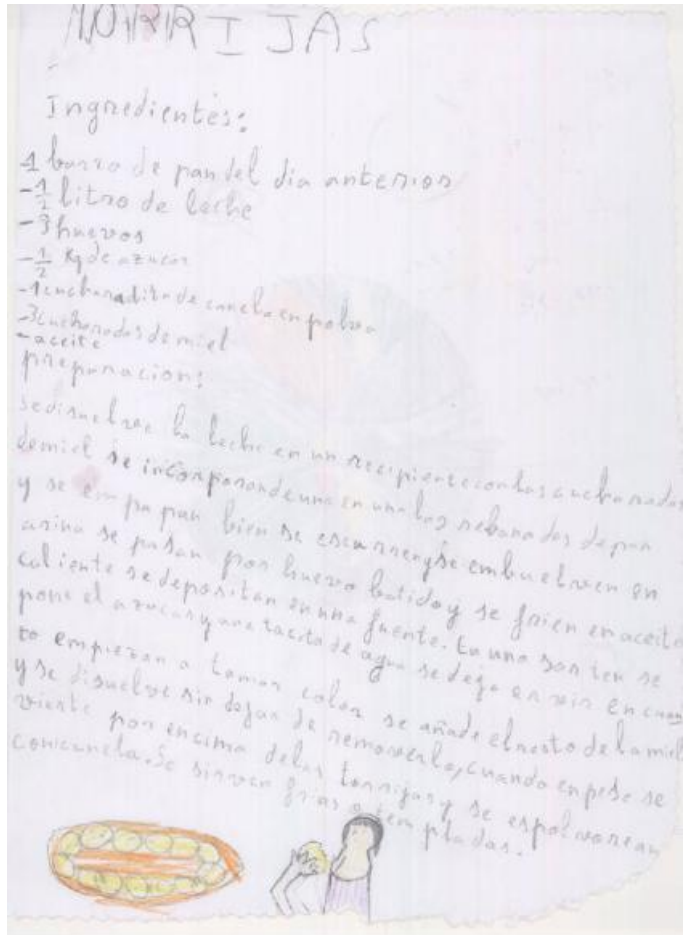 NORRIJAS
Ingredientes:
1 barra de pan del dia anterior
-1/2 litro de leche
-3 huevos
-1/2 Kg de azucar
-1 cucharadita de canela en polvo
-3 cucharadas de miel
-aceite
preparacion:
se disuelve la leche en un recipiente con las cucharadas
de miel se incorporan de una en una las rebanadas de pan
y se empapan bien se escurren y se embuelven en
arina se pasan por huevo batido y se frien en aceite
caliente se depositan en una fuente. En una sarten se
pone el azucar y una tacita de agua se deja en vin en cuan
to empiezan a tomar color se añade el resto de la miel
y se disuelve sin dejar de removerlo, cuando enpese se
vierte por encima de las torrijas y se espolvorean
con canela. Se sirven frias o templadas.